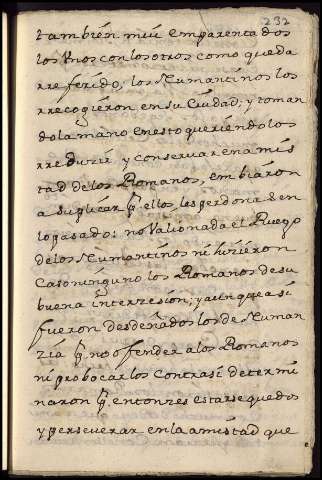 232
también mui emparentados
los Unos con los otros como queda
rreferido, los Numantinos los
rrecogieron en su Ciudad; y toman
do la mano en esto queriendo los
rreduzir y conservar en a mis
tad de los Romanos, embiaron
a suplicar q̃ ellos les perdonasen
lo pasado: no Valio nada el Ruego
de los Numantinos ni hizieron
Caso ninguno los Romanos de su
buena interzesión; y aunque asi
fueron desdeñados los de Numan
zia q̃ no ofender a los Romanos
ni probocarlos contra si determi
naron q̃ entonzes estarse quedos
y perseverar en la amistad que